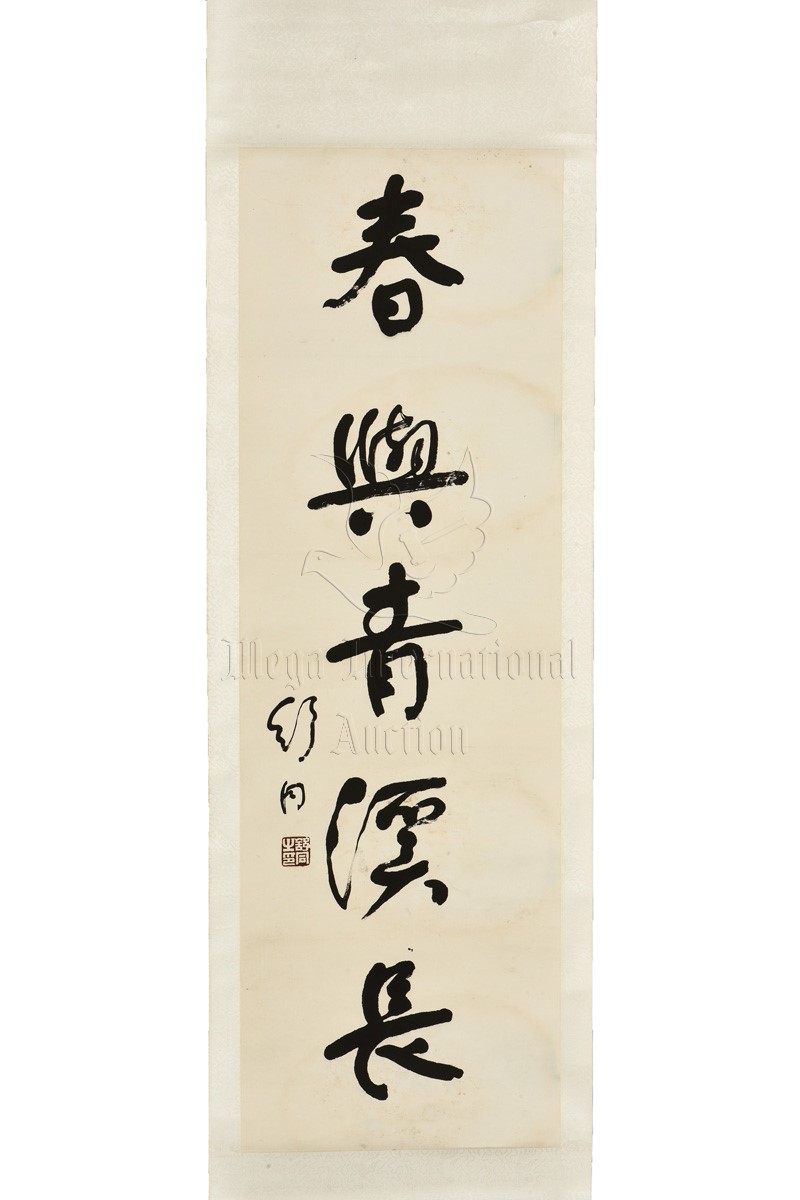 春與青溪長
舒同
舒同之印
Mega International
Auction